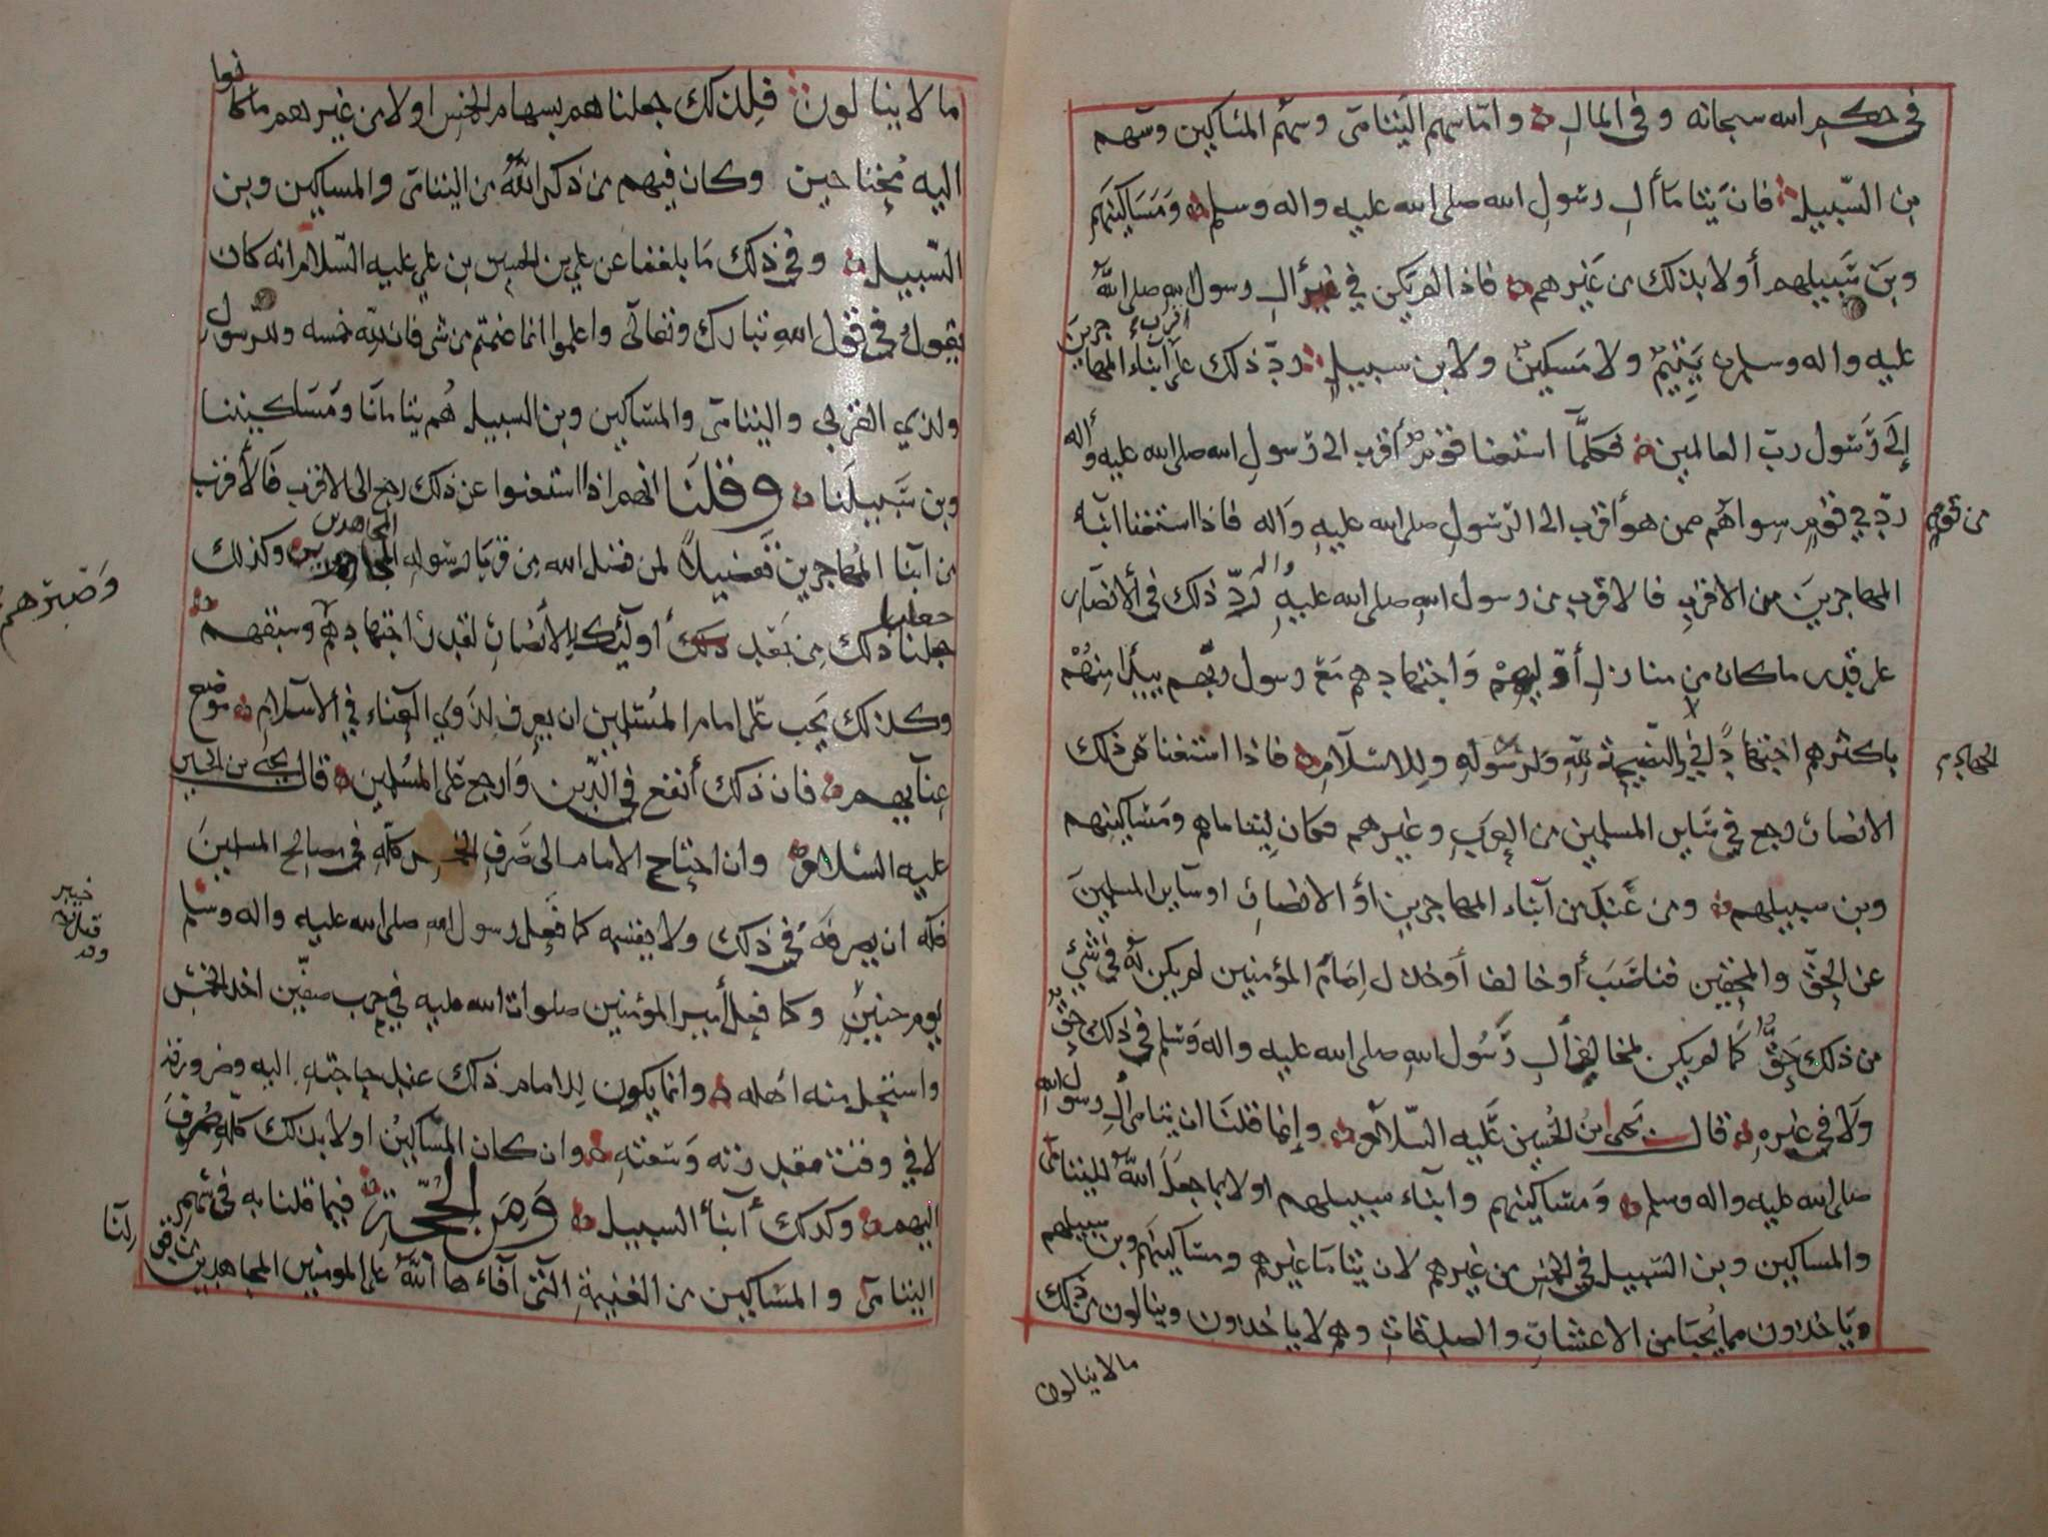 في حكم الله سبحانه وفي المال وأما سهم اليتامى وسهم المساكين وسهم
بن السبيل فان يتاما أل رسول الله صلى الله عليه واله وسلم ومساكينهم
وبن سبيلهم أولا بذلك من غيرهم فاذا لم يكن في أل رسول الله صلى الله
عليه واله وسلم يتيم ولا مسكين ولا بن سبيل رد ذلك على أقرب أبناء المهاجرين
إلى رسول رب العالمين فكلما استغنا قوم أقرب الى رسول الله صلى الله عليه وأله
رد في قوم سواهم ممن هو أقرب الى الرسول صلى الله عليه وأله فاذا استغنا ابناء
من قوم
المهاجرين من الاقرب فالاقرب من رسول الله صلى الله عليه واله رد ذلك في الأنصار
على قدر ما كان من منازل أوليهم واجتهادهم مع رسول ربهم يبدأ منهم
باكثرهم اجتهادا في النصيحة لله ولرسوله وللاسلام فاذا استغنا عن ذلك
الانصار رجع في سائر المسلمين من العرب وغيرهم فكان ليتاماهم ومساكينهم
وبن سبيلهم ومن عند من أبناء المهاجرين أو الانصار او سائر المسلمين
عن الحق والمحقين فناصب أو خالف أو خذل إمام المؤمنين لم يكن له في شئ
من ذلك حق كما لم يكن لمخالفي أل رسول الله صلى الله عليه واله وسلم في ذلك حق
ولا في غيره قال يحيى بن الحسين عليه السلام وإنما قلنا ان يتامى أل رسول الله
صلى الله عليه واله وسلم ومساكينهم وأبناء سبيلهم اولا بما جعل الله لليتامى
والمساكين وبن السبيل في الخمس من غيرهم لان يتاما غيرهم ومساكينهم وبن سبيلهم
وياخذون مما يجبا من الاعشار والصدقات وهم لا ياخذون وينالون من ذلك
مالا ينالون
ما لا ينالون فلذلك جعلناهم بسهام الخمس اولا من غيرهم ما كانوا
اليه محتاجين وكان فيهم من ذكر الله من اليتامى والمساكين وبن
السبيل وفي ذلك ما بلغنا عن علي بن الحسين بن علي عليه السلام انه كان
يقول في قول الله تبارك وتعالى واعلموا انما غنمتم من شي فان لله خمسه وللرسول
ولذي القربى واليتامى والمساكين وبن السبيل هم يتامانا ومساكيننا
وبن سبيلنا وقلنا انهم اذا استغنوا عن ذلك رجع الى الاقرب فالأقرب
من ابنا المهاجرين تفضيلا لمن فضل الله من قربا رسوله المجاهدين وكذلك
جعلنا ذلك من بعد أولئك للأنصار لقدر اجتهادهم وسبقهم
وصبرهم
وكذلك يجب على امام المسلمين ان يعرف لذوي العناء في الاسلام موضع
عنآئهم فان ذلك أنفع في الدين وارجع على المسلمين قال يحيى بن الحسين
عليه السلام وان احتاج الامام الى صرف الخمس كله في مصالح المسلمين
فله ان يصرفه في ذلك ولا يقسمه كما فعل رسول الله صلى الله عليه واله وسلم
يوم حنين وكما فعل أمير المؤمنين صلوات الله عليه في حرب صفين اخذ الخمس
واستحل منه أهله وانما يكون للامام ذلك عند حاجته اليه وضرورته
لا في وقت مقدرته وسعته وان كان المساكين اولا بذلك كله صرف
اليهم وكذلك أبنا السبيل ومن الحجة فيما قلنا به في سهم
اليتامى والمساكين من الغنيمة التي آفاءها الله على المومنين المجاهدين